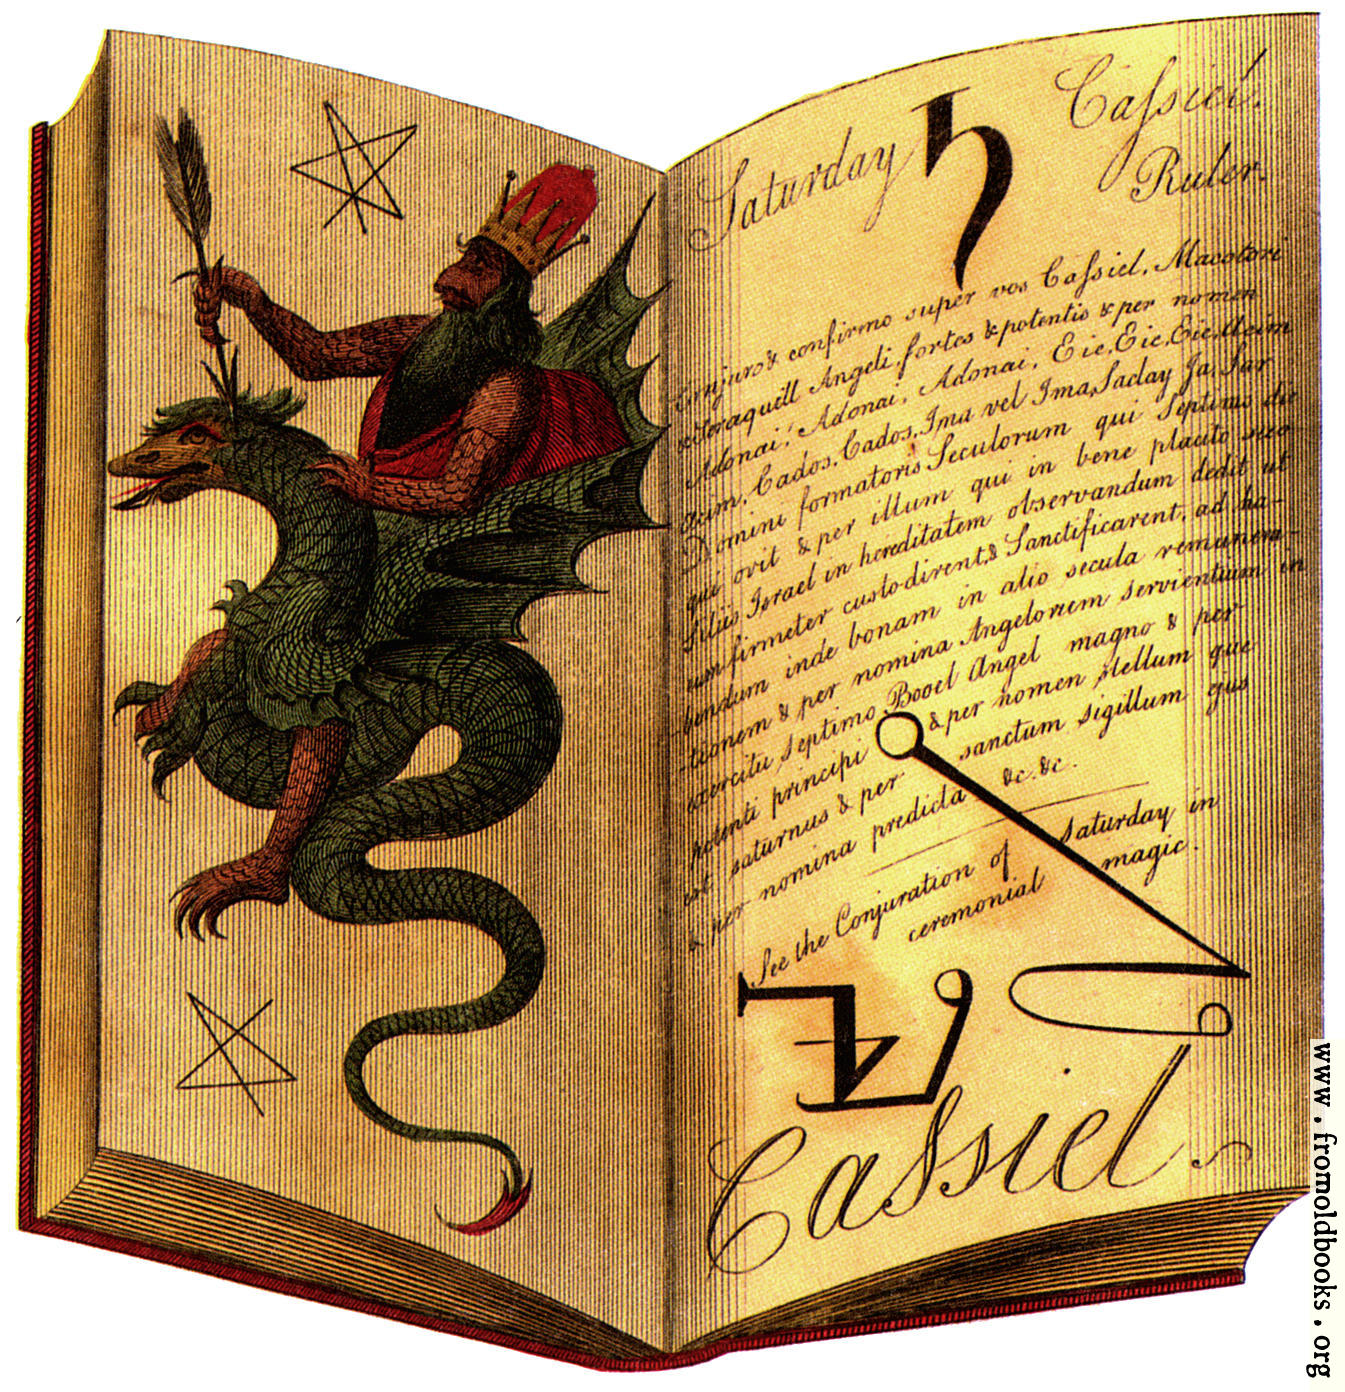 Saturday ♄ Cassiel.
Ruler.
Conjuro & confirmo super vos Cassiel, Macotori
Angeli fortes & potentis & per nomen
Adonai, Adonai, Adonai, Eie, Eie, Eie, Acim
Acim, Cados, Cados, Ima vel Ima, Saclay Ja, Sar
Domini formatoris Seculorum qui Septimo die
qui ovit & per illum qui in bene placito suo
filiis Israel in hereditatem observandum dedit ut
eum firmeter custodirent, & Sanctificarent, ad ha-
bendum inde bonam in alio secula remunera-
tionem & per nomina Angelorem servientium in
exercitu Septimo Booel Angel magno & per
potenti principi & per nomen stellum que
est saturnus & per sanctum sigillum qus
& per nomina predicta &c. &c.
See the Conjuration of Saturday in
ceremonial magic.
Cassiel
www.fromoldbooks.org